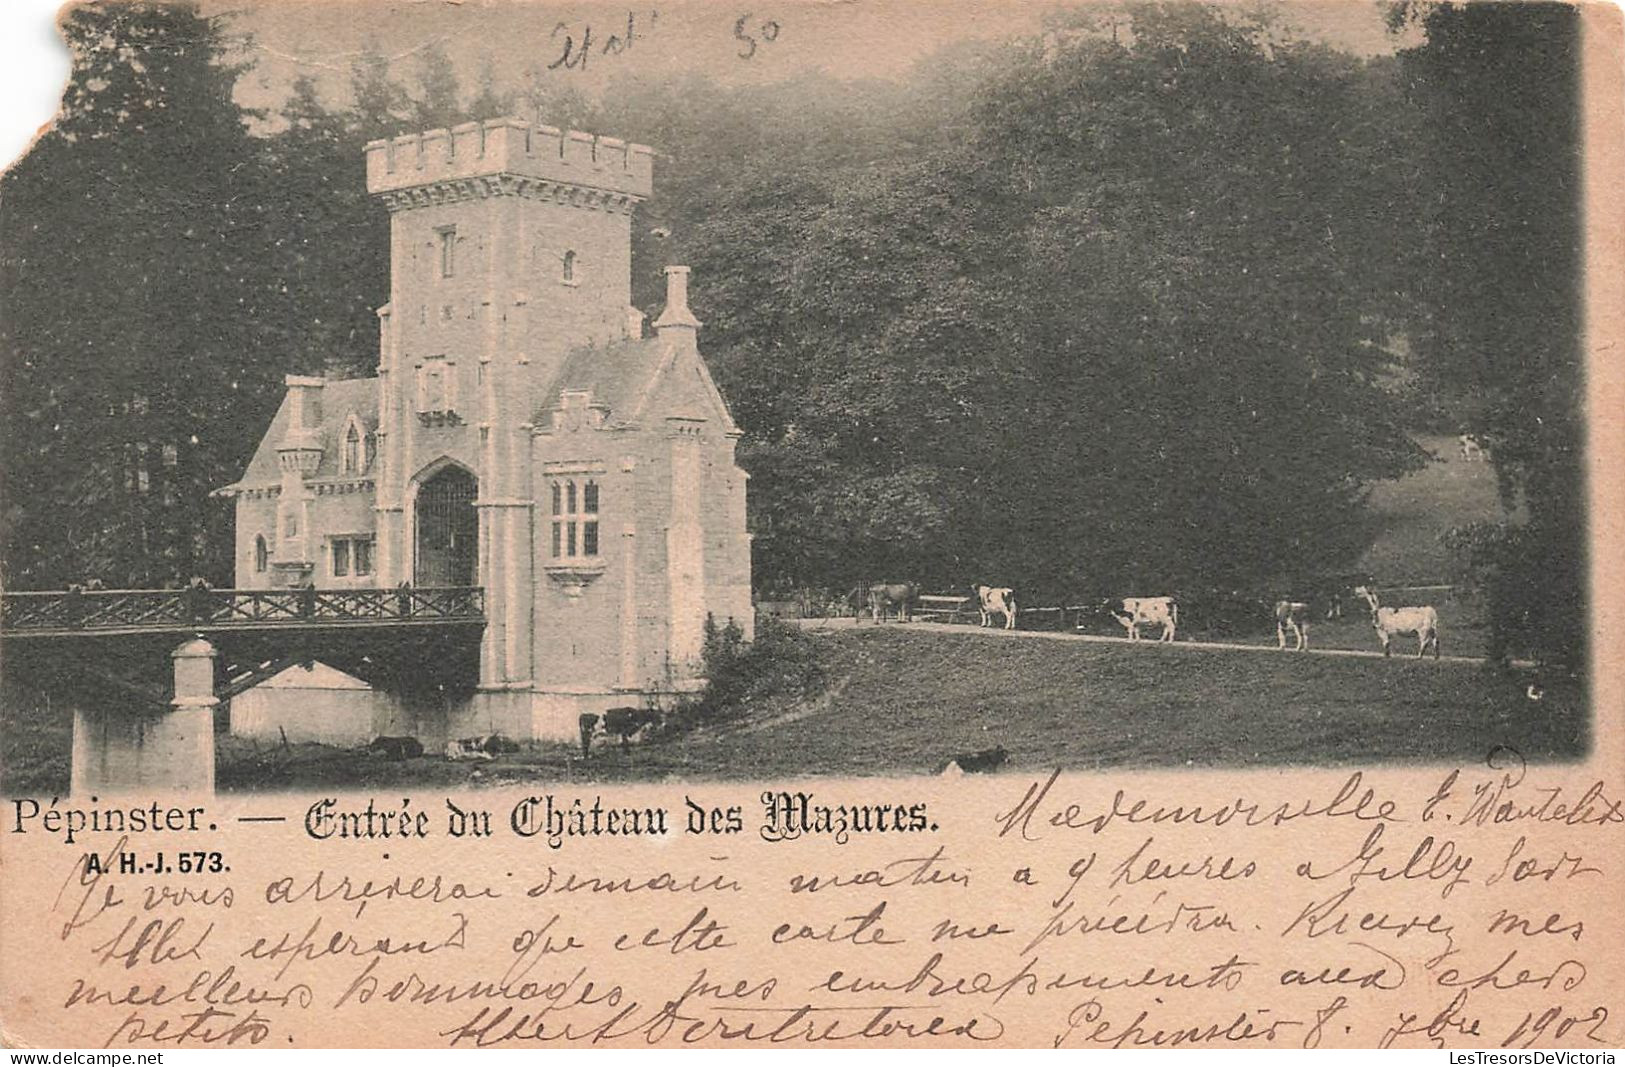 50
Pépinster. — Entrée du Château des Mazures.
Mademoiselle E.
A. H.-J. 573.
Je vous arriverai demain matin a 9 heures a Gilly
espérant que cette carte me précédra. Recevez mes
meilleurs hommages, mes embrassements aux chers
petits. Albert Pépinster 8. 7bre 1902
LesTresorsDeVictoria